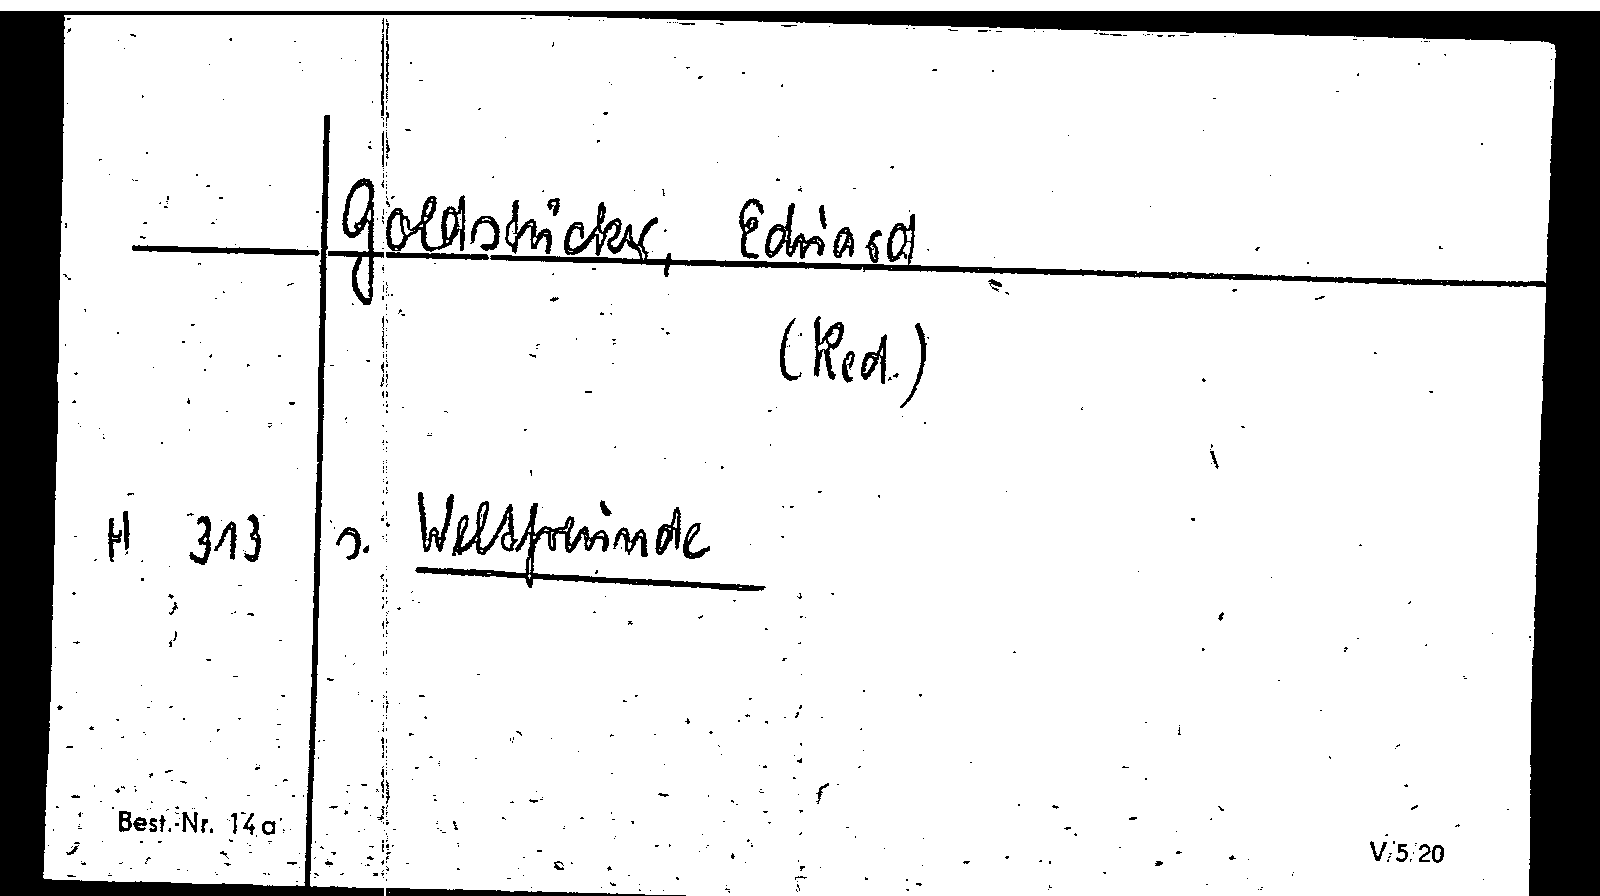 Goldstücker, Eduard
(Red.)
H 313 s. Weltfreunde
Best.-Nr. 14a
V/5/20